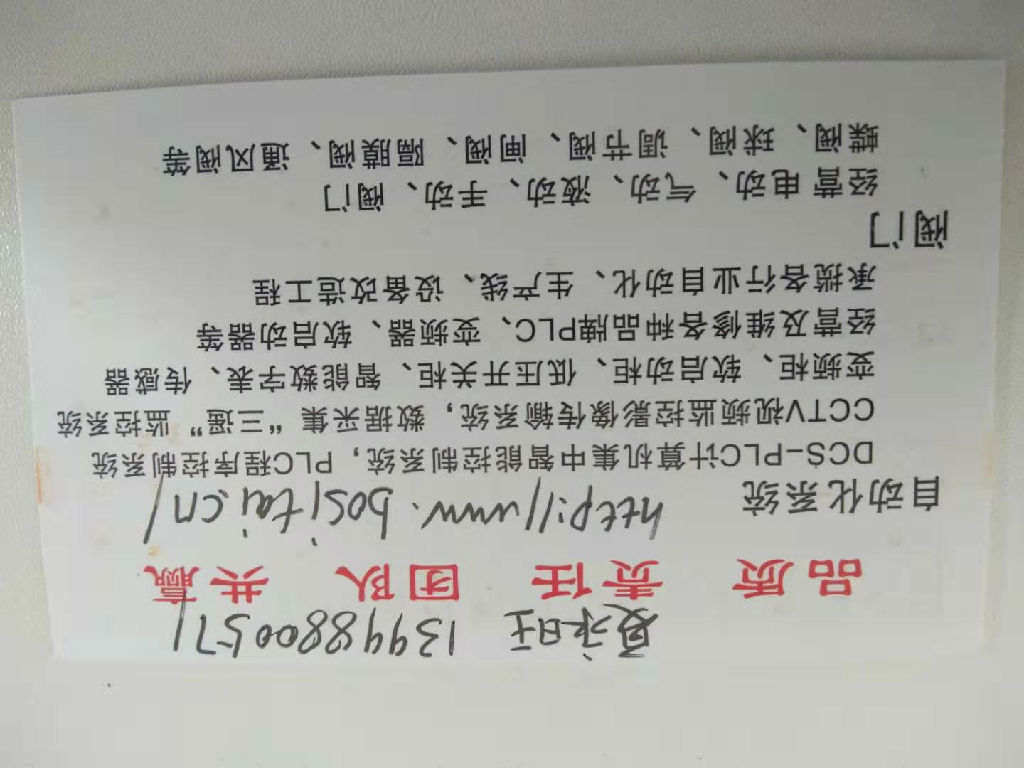 夏永旺 13948800571
品质 责任 团队 共赢
自动化系统 http://www.bositai.cn/
DCS-PLC计算机集中智能控制系统，PLC程序控制系统
CCTV视频监控影像传输系统，数据采集“三遥”监控系统
变频柜、软启动柜、低压开关柜、智能数字表、传感器
经营及维修各种品牌PLC、变频器、软启动器等
承揽各行业自动化、生产线、设备改造工程
阀门
经营电动、气动、液动、手动、阀门
蝶阀、球阀、调节阀、闸阀、隔膜阀、通风阀等